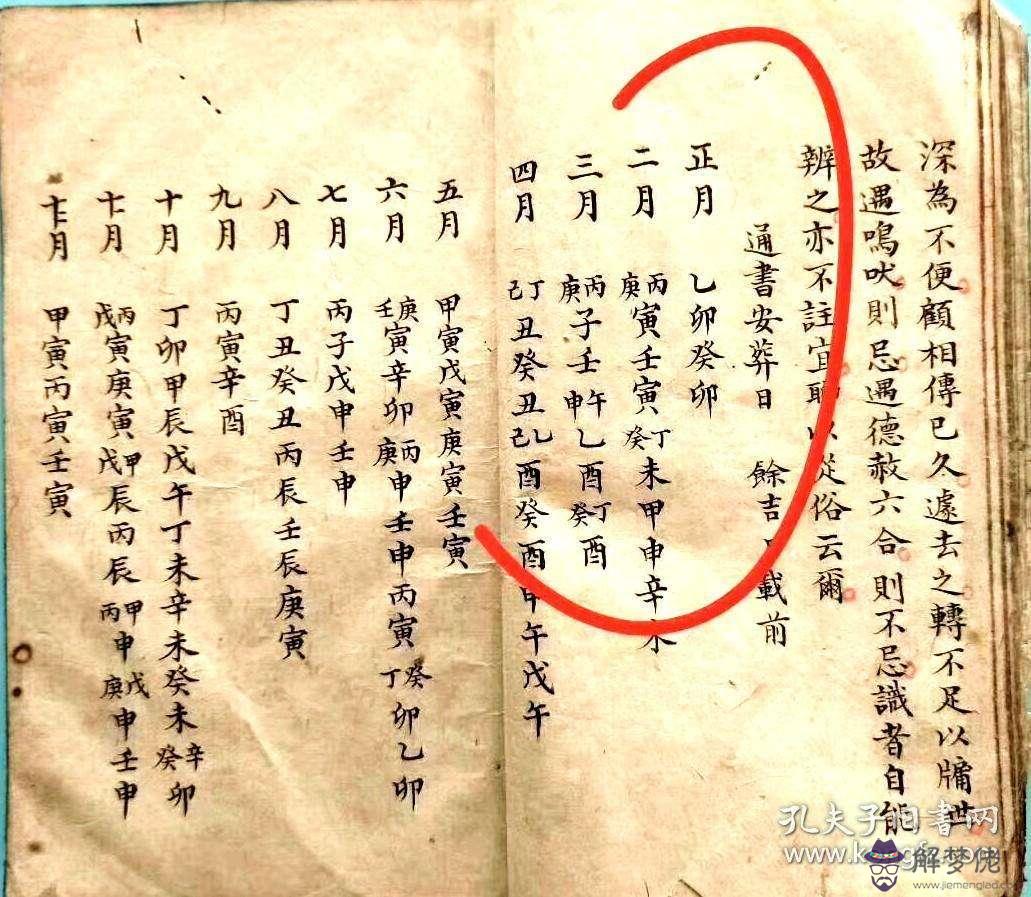 深為不便顧相傳已久遽去之轉不足以牖世
故遇鳴吠則忌遇德赦六合則不忌識者自能
辨之亦不註宜以從俗云爾
通書安葬日 餘吉載前
正月 乙卯癸卯
二月 丙庚寅壬寅丁癸未甲申辛未
三月 丙庚子壬午申乙酉丁癸酉
四月 丁己丑癸丑乙己酉癸酉甲午戊午
五月 甲寅戊寅庚寅壬寅
六月 庚壬寅辛卯丙庚申壬申丙寅癸丁卯乙卯
七月 丙子戊申壬申
八月 丁丑癸丑丙辰壬辰庚寅
九月 丙寅辛酉
十月 丁卯甲辰戊午丁未辛未癸未辛癸卯
十一月 丙戊寅庚寅甲戊辰丙辰甲丙申戊庚申壬申
十二月 甲寅丙寅壬寅
孔夫子旧书网
解梦佬
www.jiemenglad.com